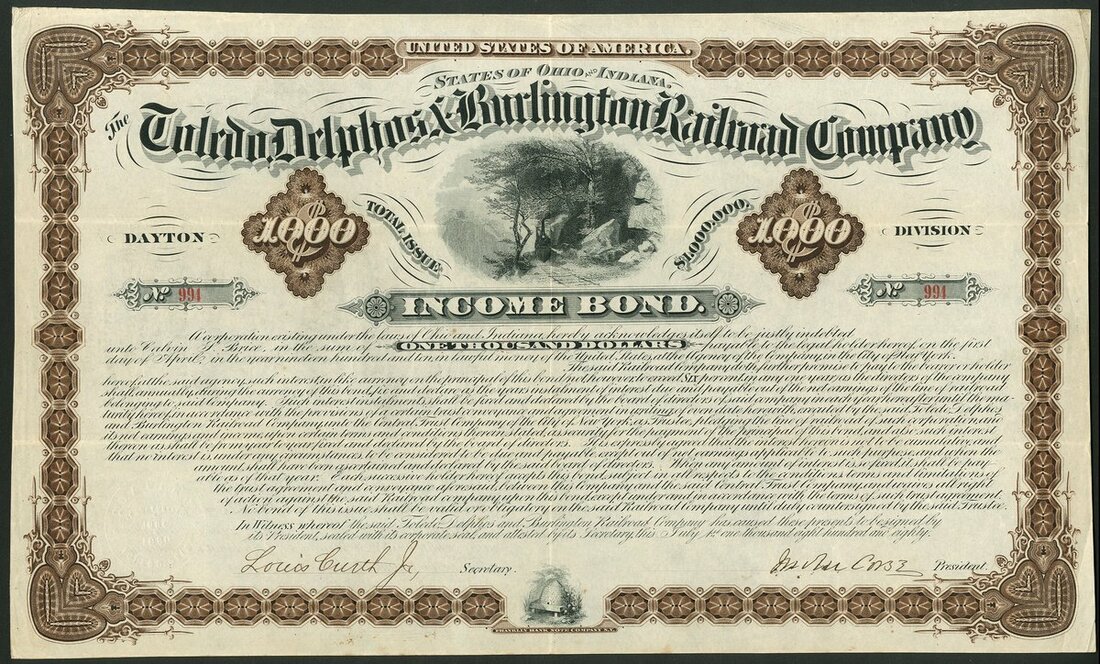 UNITED STATES OF AMERICA.
STATES OF OHIO AND INDIANA.
The Toledo, Delphos & Burlington Railroad Company
TOTAL ISSUE $1,000,000.
DAYTON $1000 $1000 DIVISION
No 994 No 994
INCOME BOND.
A corporation existing under the laws of Ohio and Indiana, hereby acknowledges itself to be justly indebted
unto Calvin S. Brice, in the sum of ONE THOUSAND DOLLARS payable to the legal holder hereof, on the first
day of April, in the year nineteen hundred and ten, in lawful money of the United States, at the Agency of the Company, in the City of New York.
The said Railroad Company doth further promise to pay to the bearer or holder
hereof, at the said agency, such interest, in like currency, on the principal of this bond, not however to exceed six per cent. in any one year, as the directors of the company
shall, annually, during the currency of this bond,
belonging to said Company. Such interest
turity hereof, in accordance with the provisions of a certain trust conveyance and agreement in writing of even date herewith, executed by the said Toledo, Delphos
and Burlington Railroad Company, unto the Central Trust Company of the City of New York, as Trustee, pledging the line of railroad of such corporation, and
its net earnings and income, upon certain terms and conditions therein stated, as security for the payment of the principal of this bond, and also such interest
thereon as shall be from year to year fixed and declared by the board of directors. It is expressly agreed that the interest hereon is not to be cumulative, and
that no interest is, under any circumstances, to be considered to be due and payable, except out of net earnings applicable to such purpose, and when the
amount shall have been ascertained and declared by the said board of directors. When any amount of interest is so fixed it shall be pay-
able as of that year. Each successive holder hereof accepts this bond, subject in all respects to the conditions, terms and limitations of
the trust agreement and conveyance aforesaid between this Company and the said Central Trust Company, and waives all right
of action against the said Railroad Company upon this bond, except under and in accordance with the terms of such trust agreement.
No bond of this issue shall be valid or obligatory on the said Railroad Company until duly countersigned by the said Trustee.
In Witness whereof, the said Toledo, Delphos and Burlington Railroad Company has caused these presents to be signed by
its President, sealed with its corporate seal, and attested by its Secretary, this July 1st one thousand eight hundred and eighty.
Louis Curth Jr, Secretary. President.
FRANKLIN BANK NOTE COMPANY N.Y.